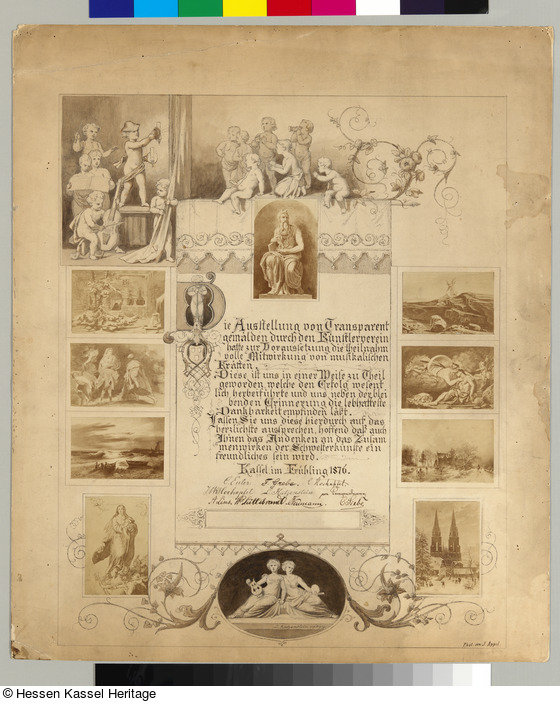 Die Ausstellung von Transparent
gemälden durch den Künstlerverein
hatte zur Voraussetzung die theilnahm
volle Mitwirkung von musikalischen
Kräften.
Diese ist uns in einer Weise zu Theil
geworden, welche den Erfolg wesent
lich herbeiführte und uns neben der blei
benden Erinnerung die lebhafteste
Dankbarkeit empfinden läßt.
Lassen Sie uns diese hierdurch auf das
herzlichste aussprechen, hoffend daß auch
Ihnen das Andenken an das Zusam
menwirken der Schwesterkünste ein
freundliches sein wird.
Kassel im Frühling 1876.
© Hessen Kassel Heritage